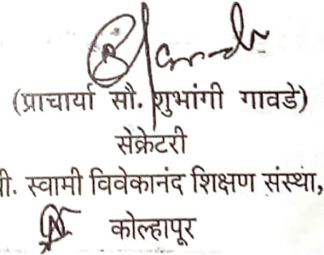 (प्राचार्या सौ. शुभांगी गावडे)
सेक्रेटरी
स्वामी विवेकानंद शिक्षण संस्था,
कोल्हापूर